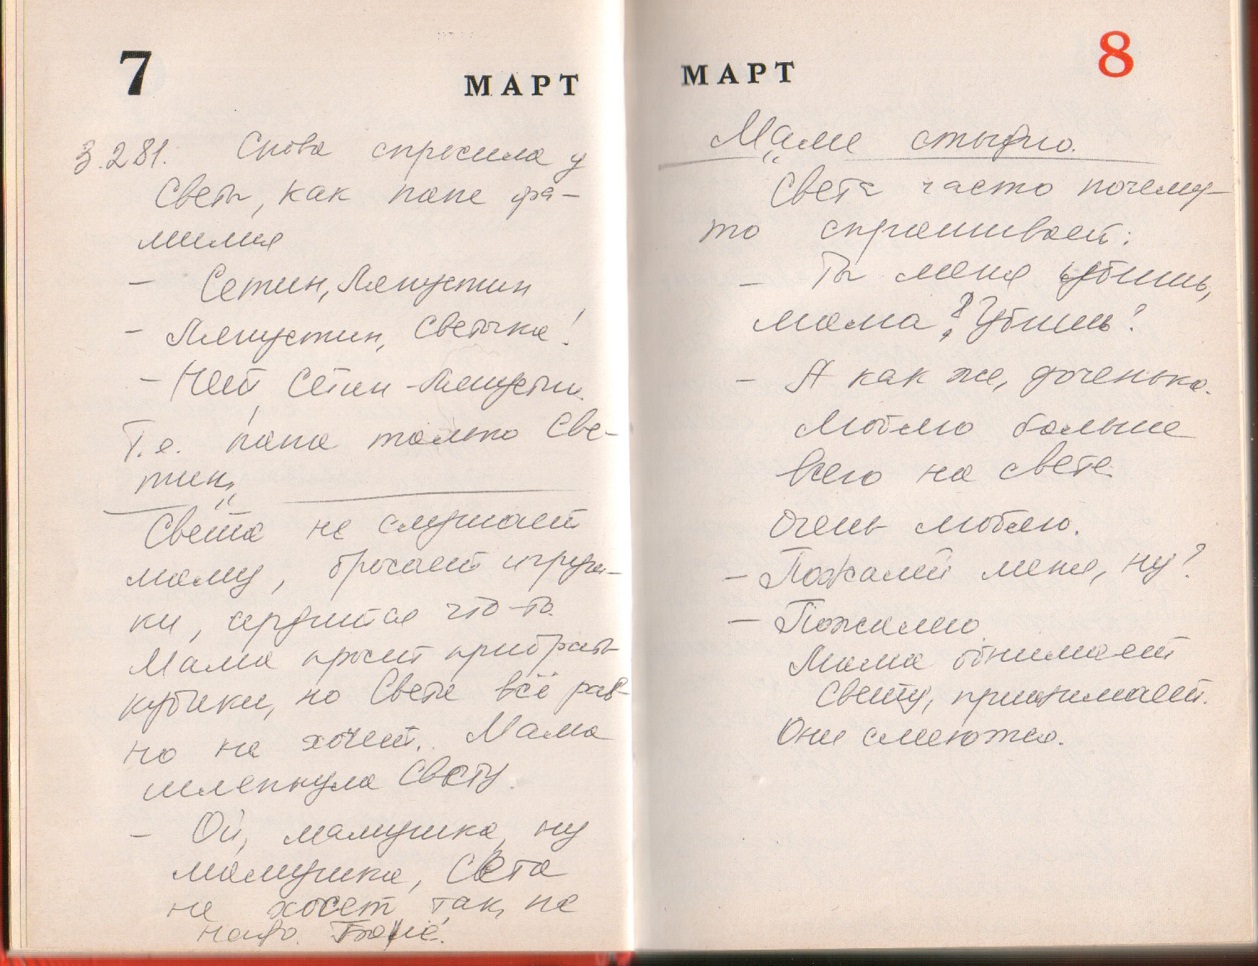 7 МАРТ
3.2.81. Снова спросила у
Светы, как папе фа-
милия
- Сетин, Ляпустин
- Ляпустин, Светочка!
- Нет, Сетин-Ляпустин.
Т.е. папа только Све-
тин,
Света не слушает
маму, бросает игруш-
ки, сердится что-то.
Мама просит прибрать
кубики, но Света всё рав-
но не хочет. Мама
шлепнула Свету.
- Ой, мамушка, ну
мамушка, Света
не хосет так, не
надо.
МАРТ 8
Маме стыдно.
Света часто почему-
то спрашивает:
- Ты меня юбишь,
мама? Юбишь?
- А как же, доченька.
Люблю больше
всего на свете
Очень люблю.
- Пожалей меня, ну?
- Пожалею.
Мама обнимает
Свету, прижимает.
Они смеются.